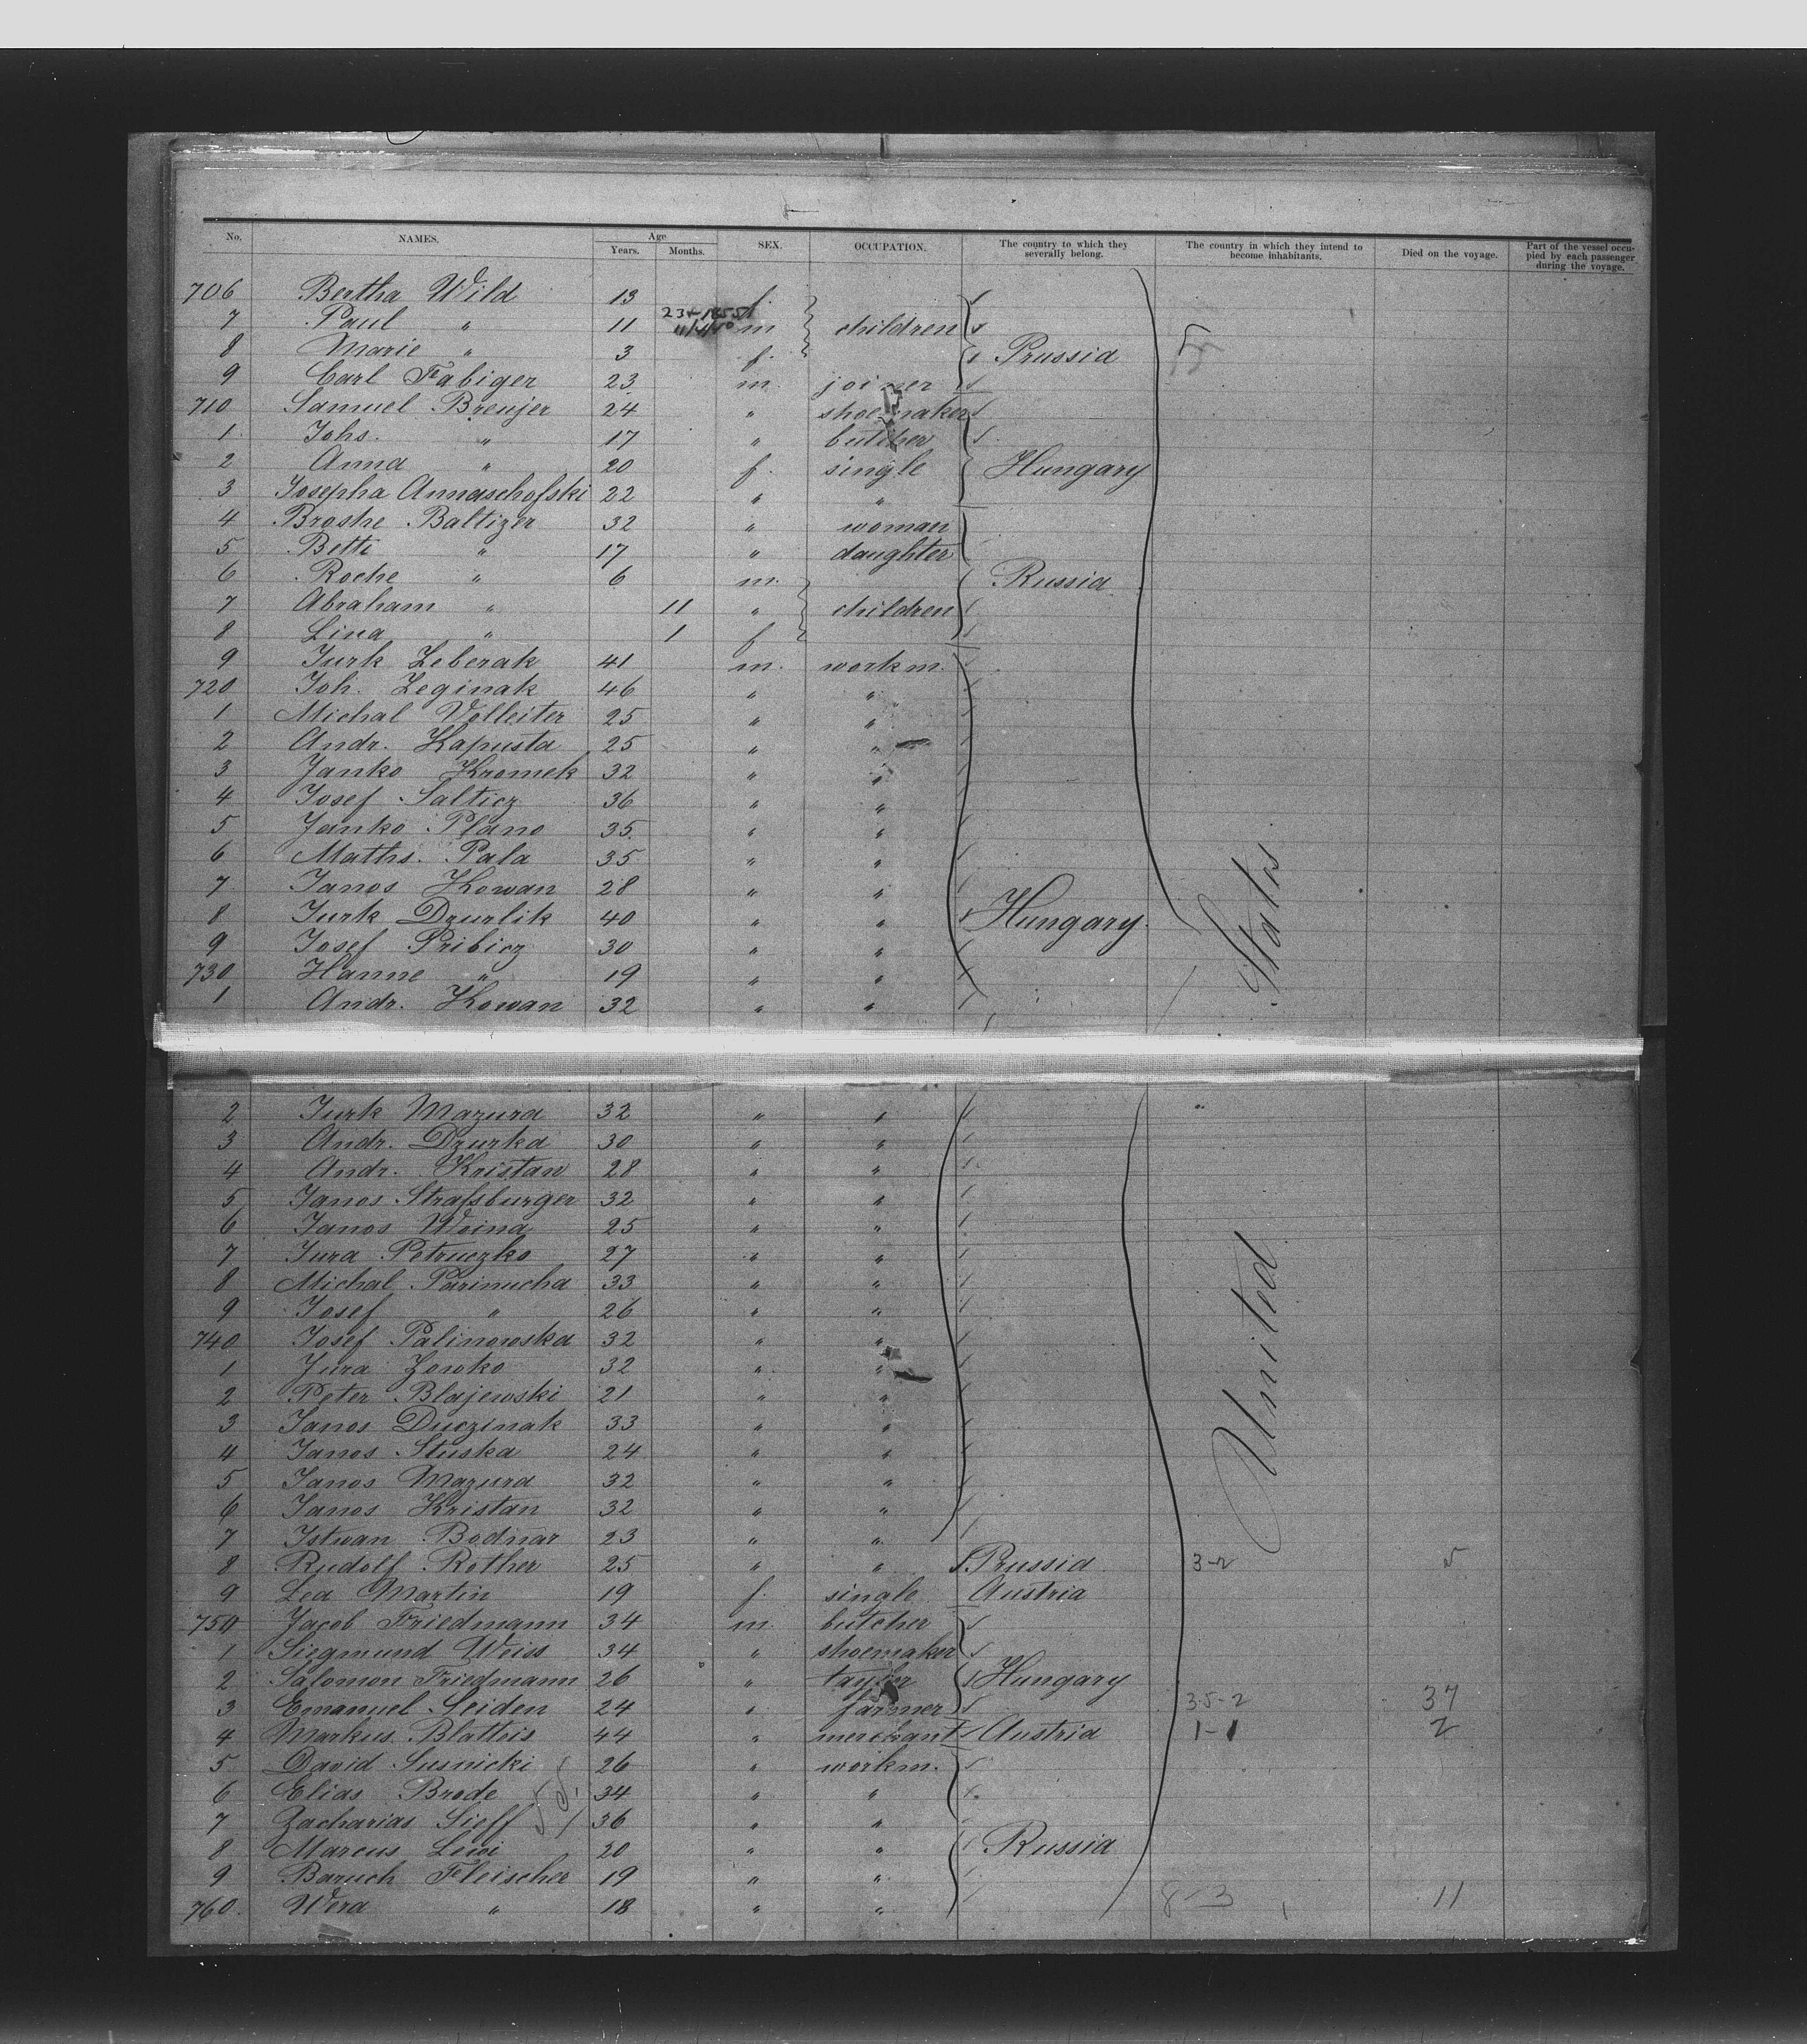 No. NAMES. Age Years. Months. SEX. OCCUPATION. The country to which they severally belong. The country in which they intend to become inhabitants. Died on the voyage. Part of the vessel occupied by each passenger during the voyage.
706 Bertha Wild 13 f.
7 Paul " 11 m children
8 Marie " 3 f. Prussia
9 Carl Fabiger 23 m. joiner
710 Samuel Breujer 24 " shoemaker
1 Johs. " 17 " butcher
2 Anna " 20 f. single Hungary
3 Josepha Annaschofski 22 " "
4 Broshe Baltizer 32 " woman
5 Bette " 17 " daughter
6 Roche " 6 m. Russia
7 Abraham " 11 " children
8 Lina " 1 f
9 Jurk Zeberak 41 m. workm.
720 Joh. Zeginak 46 " "
1 Michal Volleiter 25 " "
2 Andr. Kapusta 25 " "
3 Janko Kromek 32 " "
4 Josef Salticz 36 " "
5 Janko Plano 35 " "
6 Maths. Pala 35 " "
7 Janos Kowan 28 " "
8 Jurk Dzurlik 40 " " Hungary.
9 Josef Pribicz 30 " "
730 Hanne " 19 " "
1 Andr. Kowan 32 " "
States
2 Jurk Mazura 32 " " "
3 Andr. Dzurka 30 " "
4 Andr. Kristan 28 " "
5 Janos Strafsburger 32 " "
6 Janos Woina 25 " "
7 Jura Petruczko 27 " "
8 Michal Parinucha 33 " "
9 Josef " 26 " "
740 Josef Palinowska 32 " "
1 Jura Zowko 32 " "
2 Peter Blajewski 21 " "
3 Janos Duczinak 33 " "
4 Janos Stuska 24 " "
5 Janos Mazura 32 " "
6 Janos Kristan 32 " "
7 Istwan Bodnar 23 " "
United
8 Rudolf Rother 25 " " Prussia 3-2
9 Lea Martin 19 f. single Austria
750 Jacob Friedmann 34 m. butcher
1 Siegmund Weiss 34 " shoemaker
2 Salomon Friedmann 26 " taylor Hungary
3 Emanuel Seiden 24 " farmer 35-2 37
4 Markus Blatteis 44 " merchant Austria 1-1 2
5 David Susnicki 26 " workm.
6 Elias Brode 34 " "
7 Zacharias Sieff 36 " "
8 Marcus Lewi 20 " " Russia
9 Baruch Fleischer 19 " "
760. Wera " 18 " " 8-3 11